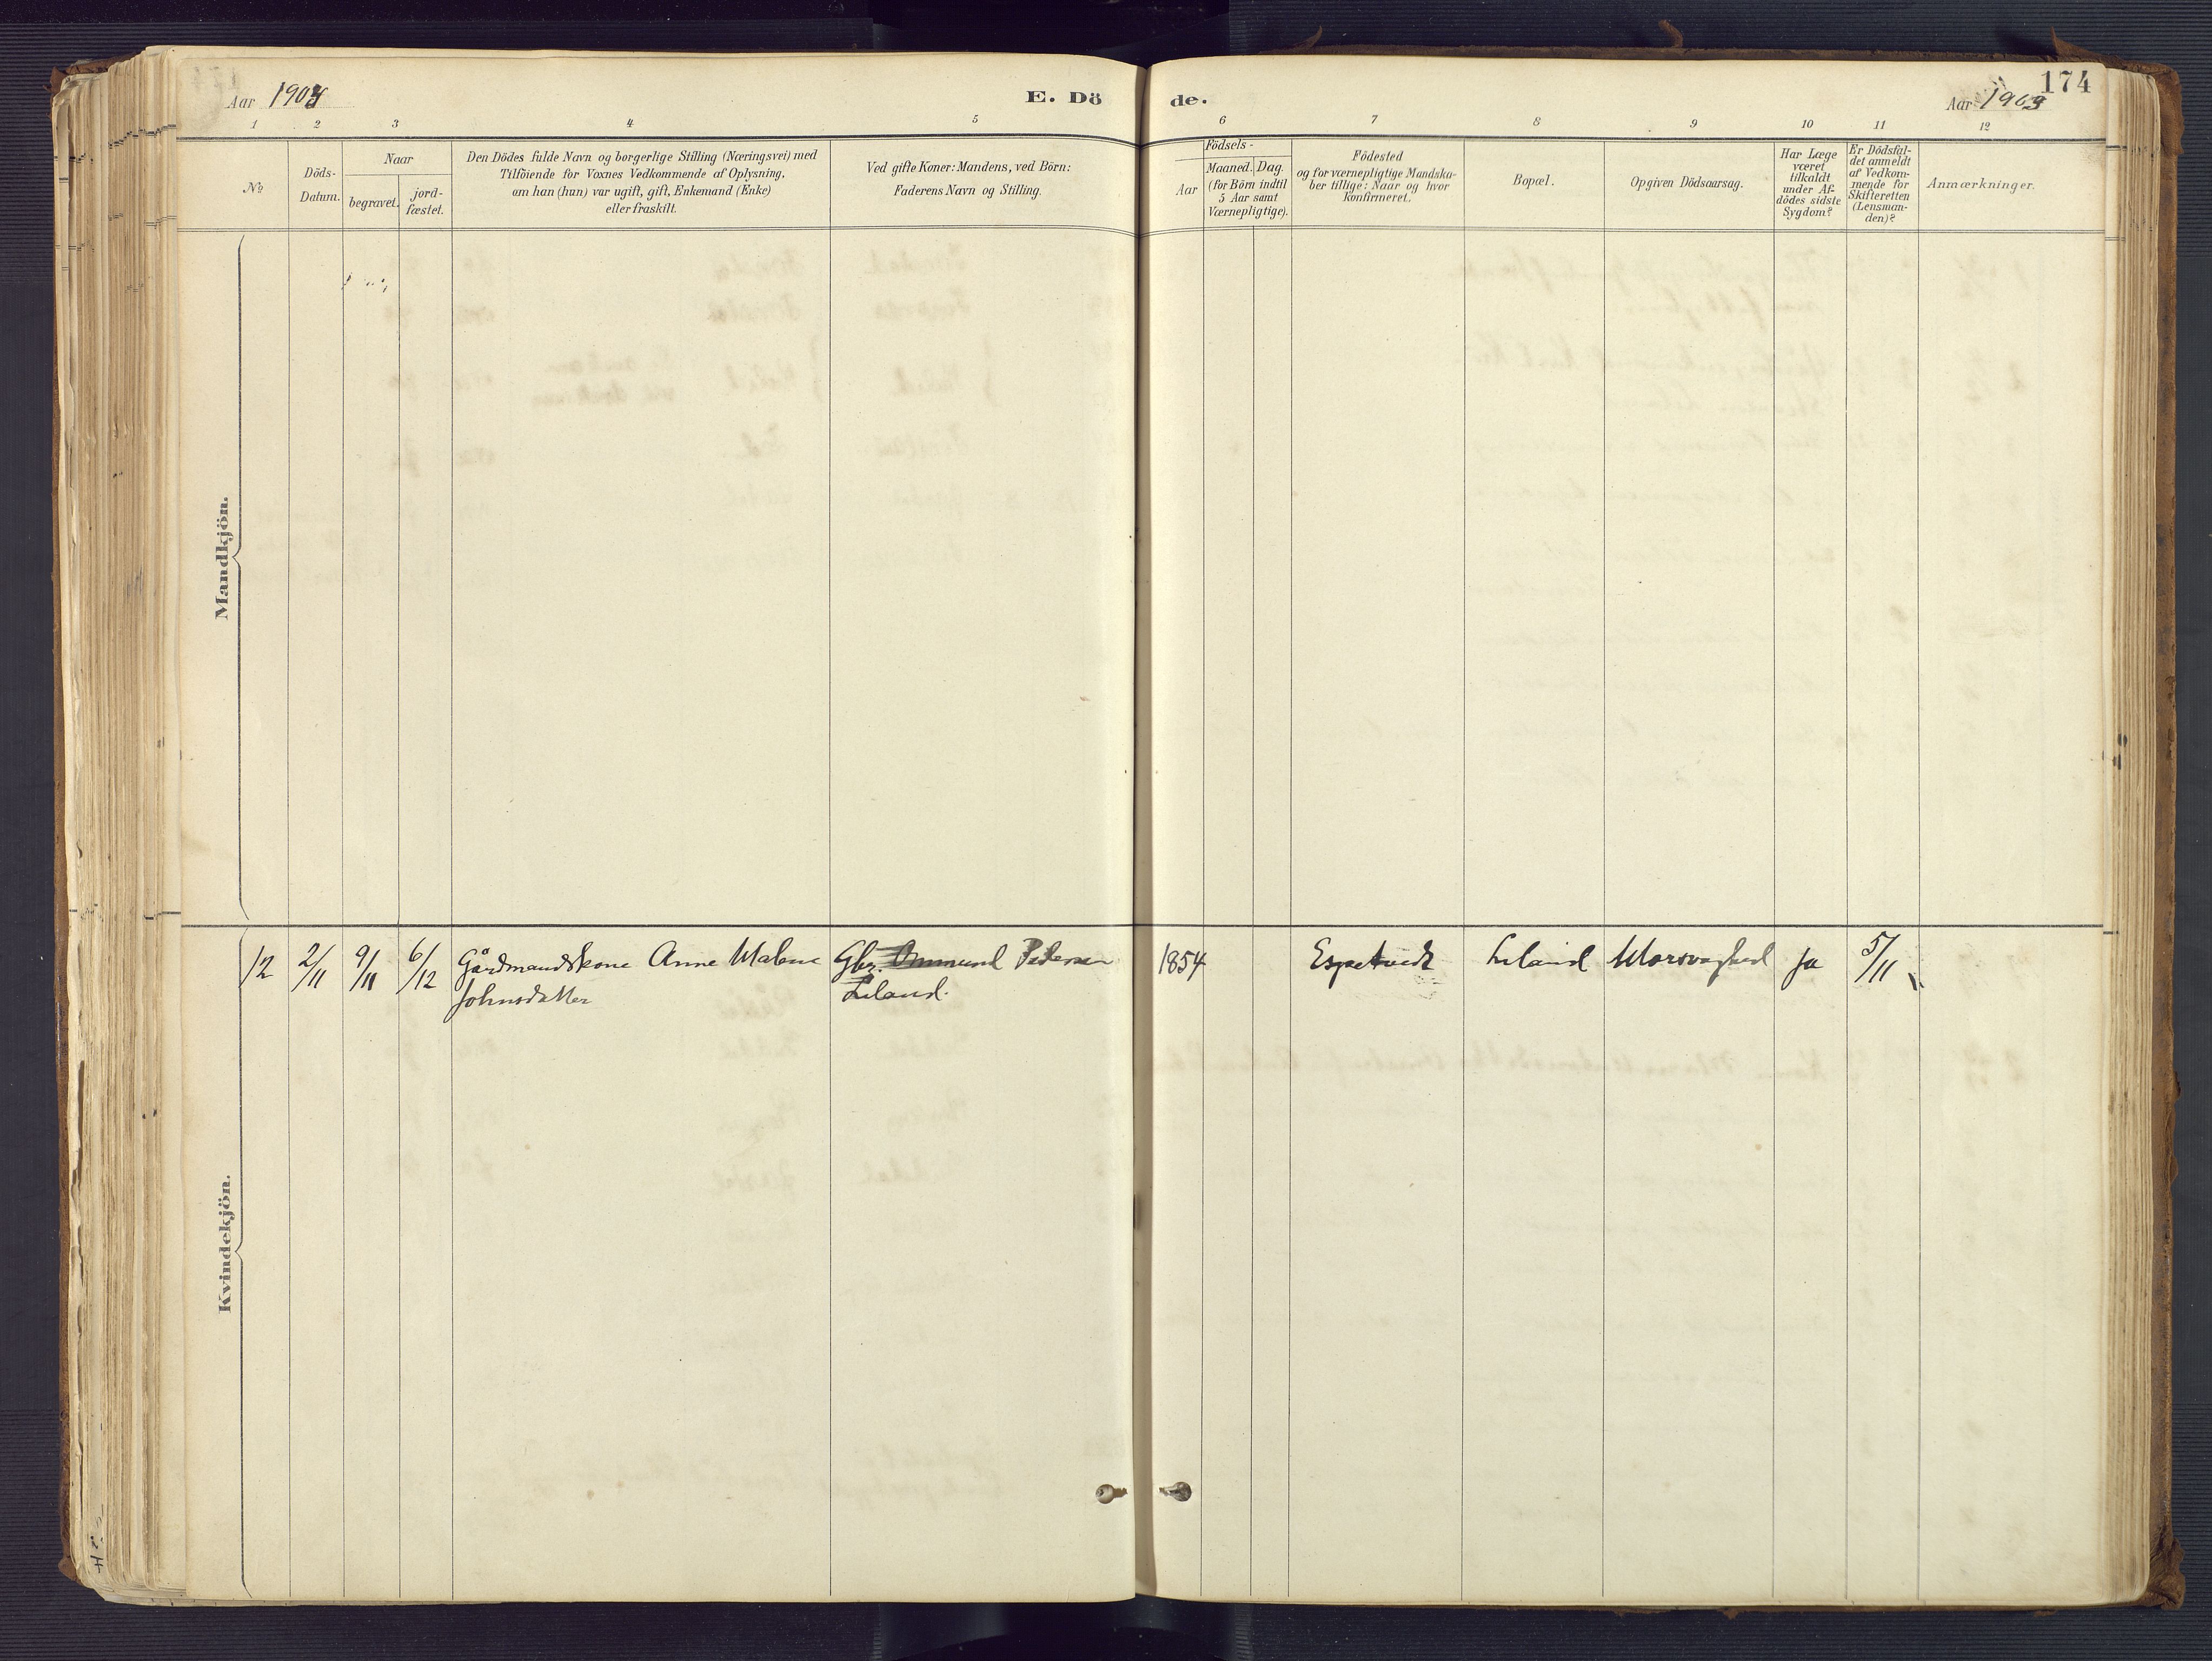 174
Aar 1903
E. Dö de.
Aar 1903
1 2 3 4 5 6 7 8 9 10 11 12
№
Döds-
Datum.
Naar
begravet.
jord-
fæstet.
Den Dödes fulde Navn og borgerlige Stilling (Næringsvei) med
Tilföiende for Voxnes Vedkommende af Oplysning,
om han (hun) var ugift, gift, Enkemand (Enke)
eller fraskilt.
Ved gifte Koner: Mandens, ved Börn:
Faderens Navn og Stilling.
Födsels-
Aar
Maaned. Dag.
(for Börn indtil
5 Aar samt
Værnepligtige).
Födested
og for værnepligtige Mandska-
ber tillige: Naar og hvor
konfirmeret.
Bopæl.
Opgiven Dödsaarsag.
Har Læge
været
tilkaldt
under Af-
dödes sidste
Sygdom?
Er Dödsfal-
det anmeldt
af Vedkom-
mende for
Skifteretten
(Lensman-
den)?
Anmærkninger.
Mandkjön.
Kvindekjön.
12 2/11 9/11 6/12 Gårdmandskone Anne Malene Gbr. Ommund Pedersen 1854 Espetvedt Leland Ja 5/11
Johnsdatter Leland.